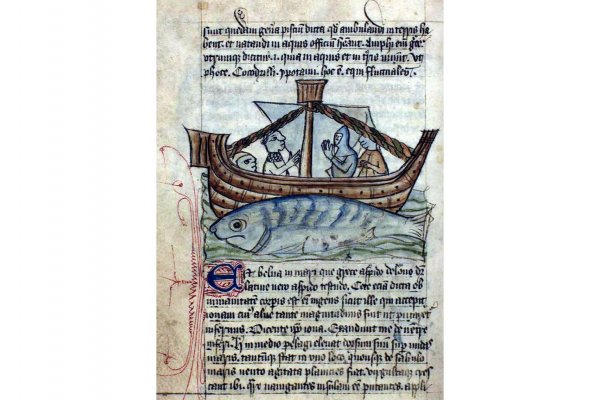 sunt quedam gen̄a pisciū dicta qđ ambulandi in terris ha
bent. et natandi in aquis officiū habeant. Amphi em̄ grec
utrumque dicit̄ .i. quia in aquis et in t̄ris uiuūt. ut
phoce. Cocodrilli. ypotami. hoc ē. equi fluctuales.
Est belua in mari que grece aspido delone dr̄
latine uero aspido testudo. Cete eciā dicta ob
inmanitatem corpis est eī ingens sicut ille qui accepit
ionam cuiꝰ aluꝰ tante magnitudinis fuit ut putaret̄
infernus. Dicente ipō iona. Exaudiuit me de uentre
inferi. In medio pelagi eleuat dorsum suū sup̄ undas
maris. tantumque stat in uno loco. quousque de sabulo
maris uento agitata planicies fiat. virgulta cres
cant ibi. Qr̄ nauigantes insulam eē putantes. appli